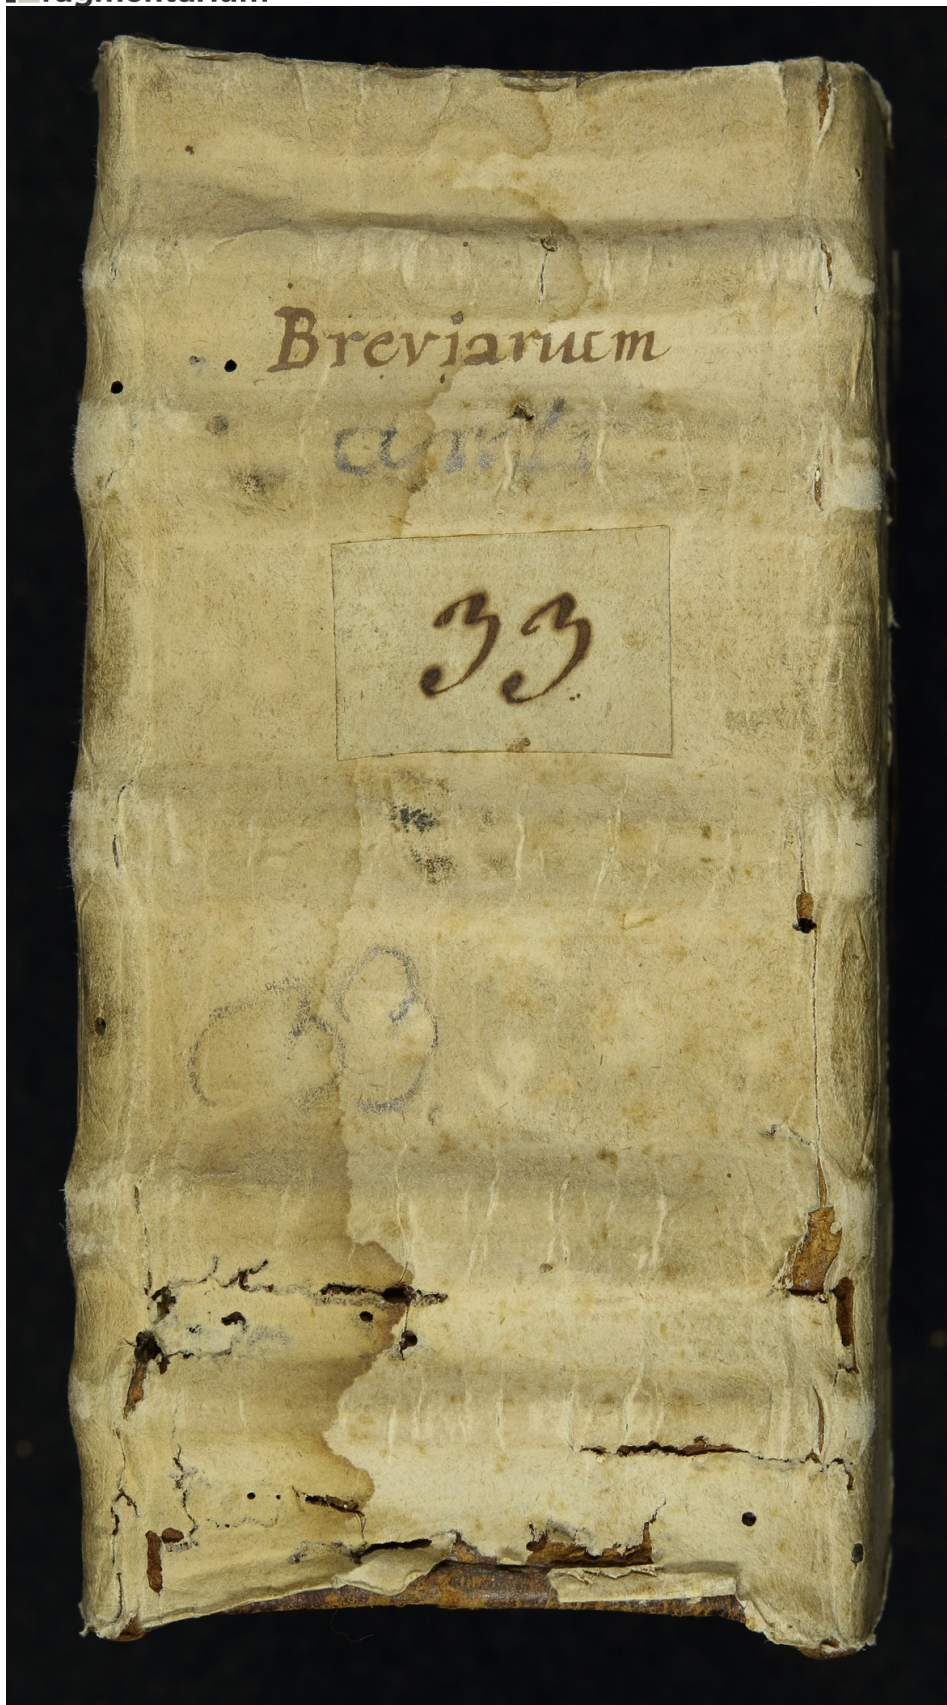 Breviarum
33
38